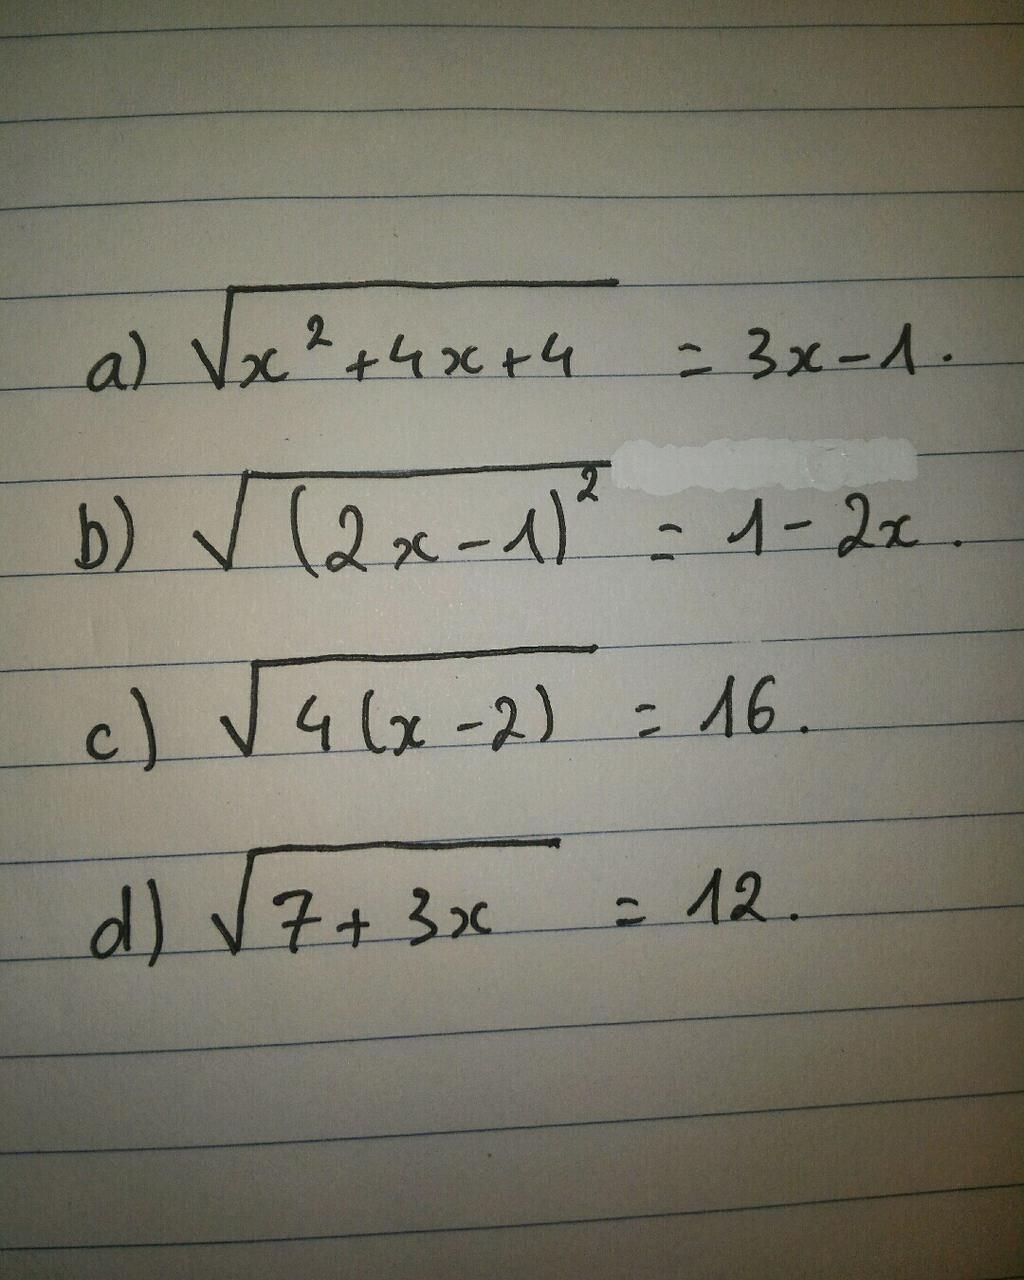 a) √(x²+4x+4) = 3x-1.
b) √((2x-1)²) = 1-2x.
c) √(4(x-2)) = 16.
d) √(7+3x) = 12.